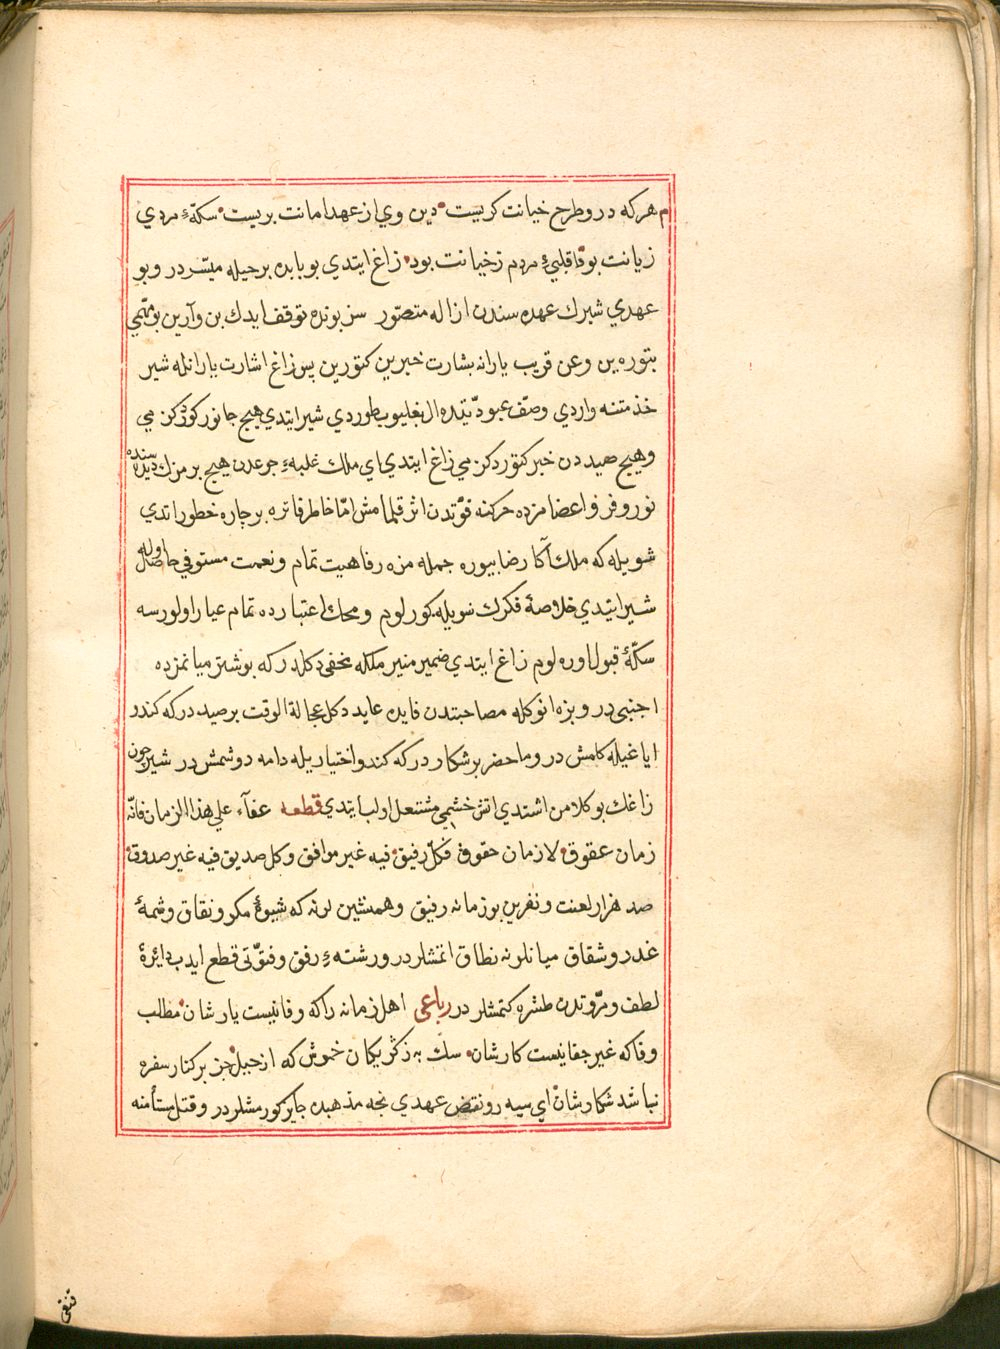 م هركه در و طرح خيانت كريست دين وي از عهد امانت بريست سكّهٔ مردي
زيانت بود قلبئ مردم ز خيانت بود زاغ ايتدي بو بابده بر حيله ميسّردر و بو
عهدي شيرك عهده سندن ازاله متصوّر سز بونده توقف ايدك بن وآرين بو مهمّي
بتوره ين و عن قريب يارانه بشارت خبرين كتورين پس زاغ اشارت يارانله شير
خدمتنه واردي وصف عبوديّتده ال بغليوب طوردي شير ايتدي هيچ جانور كوردكز مي
و هيچ صيددن خبر كتوردكز مي زاغ ايتدي اي ملك غلبهٔ جوعدن هيچ برمزك ديده سنده
نور و فر و اعضامزده حركته قوّتدن اثر قلمامش امّا خاطر فاتره بر چاره خطور اتدي
شويله كه ملك آكا رضا بيوره جمله مزه رفاهيت تمام و نعمت مستوفي حاصل اوله
شير ايتدي خلاصهٔ فكرك سويله كوره لوم و محك اعتبارده تمام عيار اولورسه
سكّهٔ قبول اوره لوم زاغ ايتدي ضمير منير ملكه مخفي دكلدر كه بو شتر ميانمزده
اجنبي در و بزه انوكله مصاحبتدن فايده عايد دكل عجالة الوقت بر صيددر كه كندر
اياغيله كلمش در و ماحضر بر شكاردر كه كندو اختياريله دامه دوشمش در شير چون
زاغك بو كلامن اشتدي اتش خشمي مشتعل اولب ايتدي قطعه عفآء علي هذا الزمان فانّه
زمان عقوق لا زمان حقوق فكلّ رفيق فيه غير موافق و كل صديق فيه غير صدوق
صد هزار لعنت و نفرين بو زمانه رفيق و همنشين لرنه كه شيوهٔ مكر و نفاق و شمهٔ
غدر و شقاق ميانلرنه نطاق اتمشلردر و رشتهٔ رفق و فتوّتي قطع ايدب دائرهٔ
لطف و مروّتدن طشره كتمشلردر رباعي اهل زمانه راكه وفا نيست يارشان مطلب
وفا كه غير جفا نيست كارشان سك به ز كربكان خموش كه از حيل جز بر كنار سفره
نباشد شكارشان اي سيه رو نقض عهدي نجه مذهبده جايز كورمشلردر و قتل مستأمنه